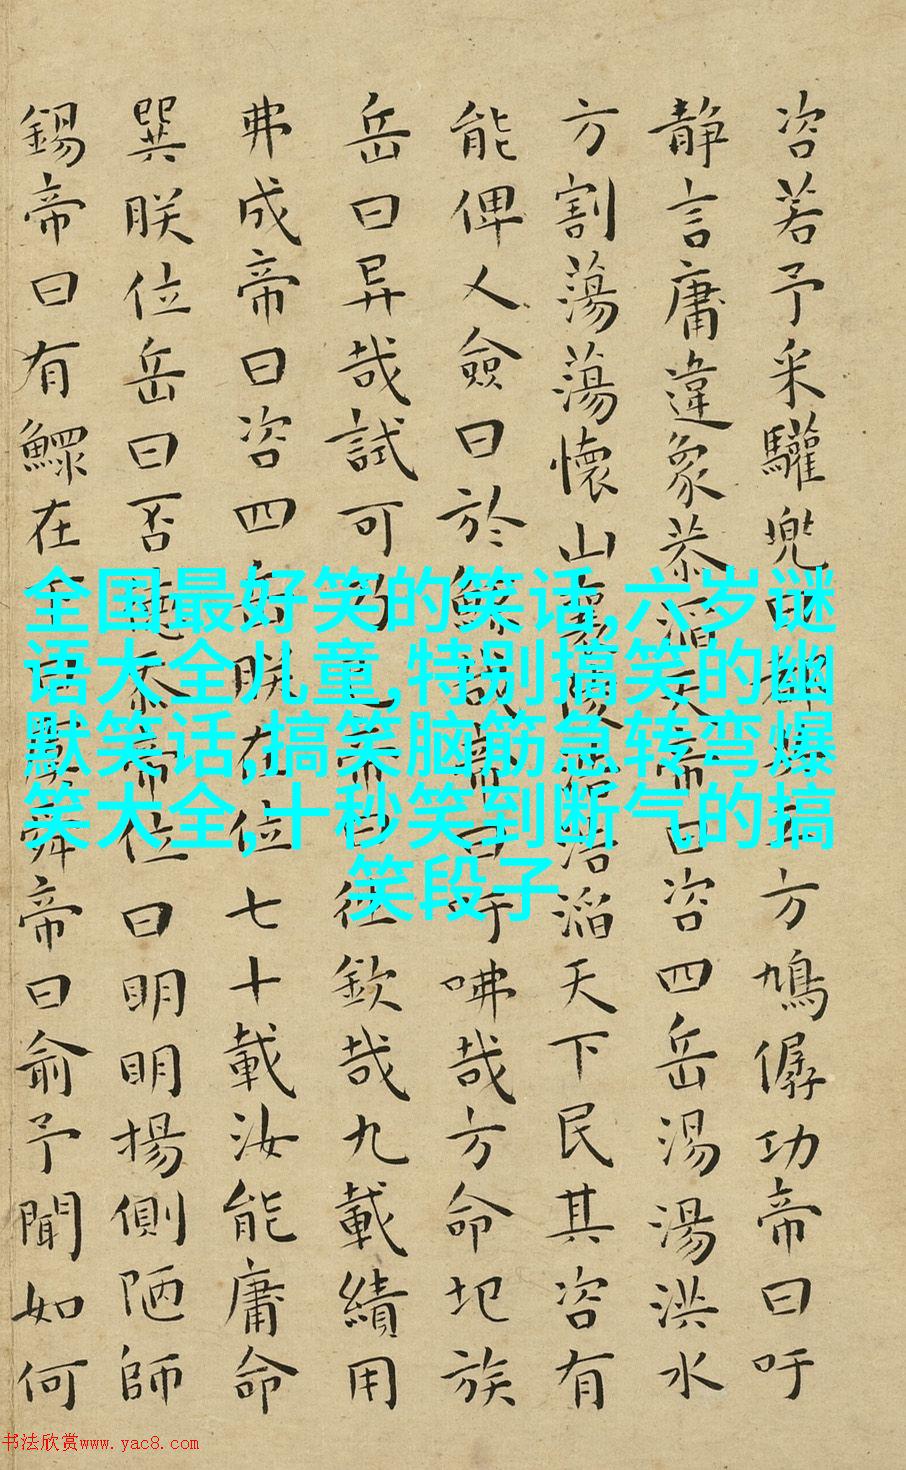 咨若予采驩兜曰都共工方鳩僝功帝曰吁
静言庸違象恭滔天帝曰咨四岳湯湯洪水
方割蕩蕩懷山襄陵浩浩滔天下民其咨有
能俾乂僉曰於鯀哉帝曰吁咈哉方命圮族
岳曰异哉試可乃已帝曰往欽哉九載績用
弗成帝曰咨四岳朕在位七十載汝能庸命
巽朕位岳曰否德忝帝位曰明明揚側陋師
錫帝曰有鰥在下曰虞舜帝曰俞予聞如何
全国最好笑的笑话,六岁谜
语大全儿童,特别搞笑的幽
默笑话,搞笑脑筋急转弯爆
笑大全,十秒笑到断气的搞
笑段子
书法欣赏www.yac8.com